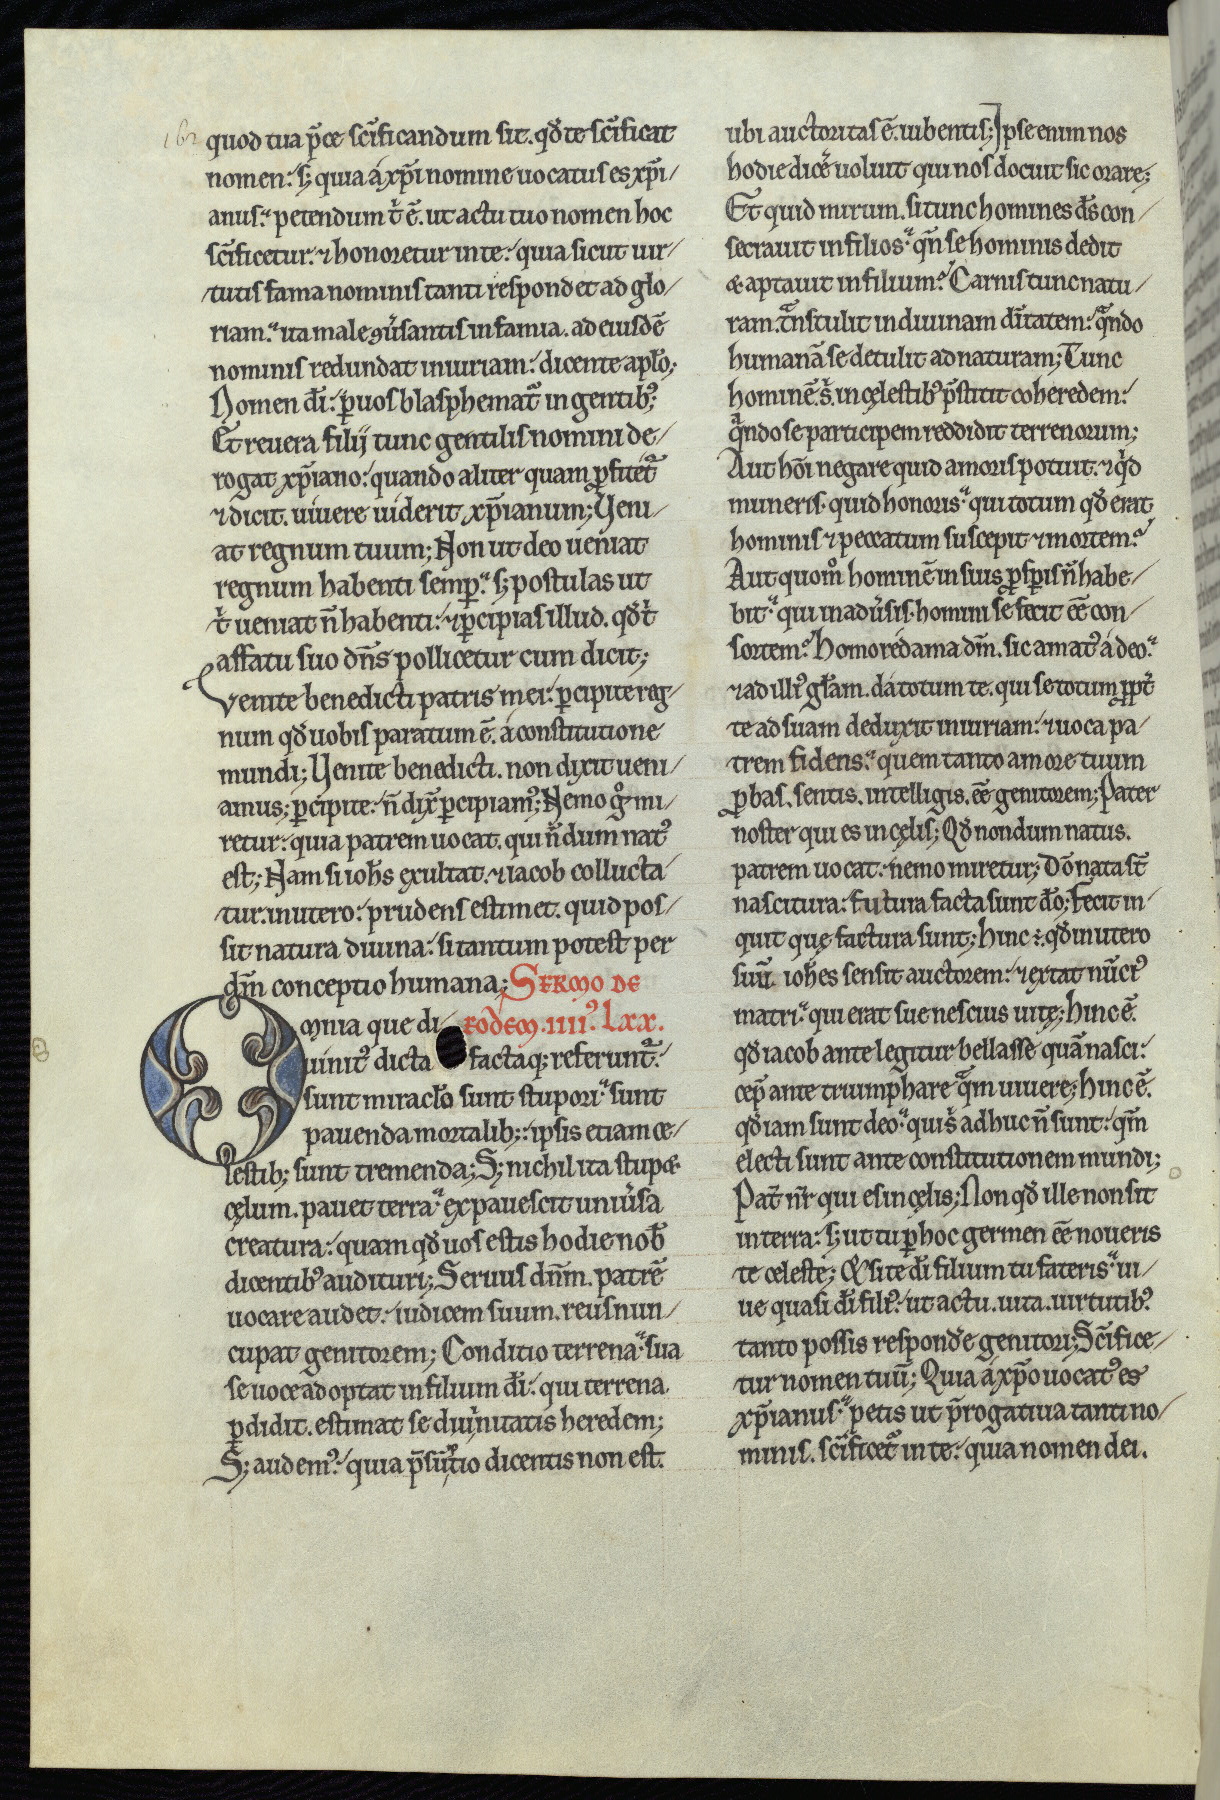 162
quod tua p̄ce sc̄ificandum sit. qđ te sc̄ificat
nomen: s; quia á xp̄i nomine uocatus es xp̄i/
anus: petendum t̓ ē. ut actu tuo nomen hoc
sc̄ificetur: ⁊ honoretur in te: quia sicut uir/
tutis fama nominis tanti respondet ad glo/
riam: ita male ꝯuersantis infamia. ad eiusdē
nominis redundat iniuriam: dicente apło;
Nomen dī: ꝑ uos blasphemat᷑ in gentibꝰ;
Et reuera filij tunc gentilis nomini de/
rogat xp̄iano: quando aliter quam ꝓfitet᷑
⁊ dicit. uiuere uiderit xp̄ianum; Veni/
at regnum tuum; Non ut deo ueniat
regnum habenti semꝑ: s; postulas ut
t̓ ueniat n̄ habenti: ⁊ ꝑcipias illud. qđ t̓
affatu suo dn̄s pollicetur cum dicit;
Venite benedicti patris mei: ꝑcipite reg/
num qđ uobis paratum ē. á constitutione
mundi; Venite benedicti. non dixit ueni/
amus; ꝑcipite: n̄ dix̄ ꝑcipiamꝰ; Nemo g̊ mi/
retur: quia patrem uocat. qui n̄dum natꝰ
est; Nam si ioħs exultat: ⁊ iacob collucta/
tur: in utero: prudens estimet. quid pos/
sit natura diuina: si tantum potest per
dm̄ conceptio humana; SERMO DE
EODEM .IIIIꝰ. LXX.
Omnia que di/
uinitꝰ dicta factaq; referunt᷑:
sunt miraclo sunt stupori: sunt
pauenda mortalib;: ipsis etiam cę/
lestib; sunt tremenda; S; nichil ita stupet
cęlum. pauet terra: expauescit uniūsa
creatura: quam qđ uos estis hodie nob̄
dicentibꝰ audituri; Seruus dn̄m. patrē
uocare audet: iudicem suum. reus nun/
cupat genitorem; Conditio terrena: sua
se uoce adoptat in filium dī: qui terrena
ꝑdidit. estimat se diuinitatis heredem;
S; audemꝰ: quia p̄sūtio dicentis non est.
ubi auctoritas ē. iubentis; Ipse enim nos
hodie dicē uoluit qui nos docuit sic orare;
Et quid mirum. si tunc homines dš con/
secrauit in filios: qn̄ se hominis dedit
& aptauit in filium? Carnis tunc natu/
ram. tͣnstulit in diuinam dītatem: qͣndo
humanā se detulit ad naturam; Tunc
hominē. s̓. in cęlestibꝰ p̄stitit coheredem:
qͣndo se participem reddidit terrenorum;
Aut hōi negare quid amoris potuit. ⁊ qͥd
muneris. quid honoris: qui totum qđ erat
hominis ⁊ peccatum suscepit ⁊ mortem?
Aut quom̊ hominē in suis ꝓsꝑis n̄ habe/
bit: qui in adūsis. homini se fecit eē con/
sortem? Homo rédama dm̄. sic amatꝰ á deo:
⁊ ad illiꝰ głam. dá totum te. qui se totum ꝓpt̓
te ad suam deduxit iniuriam: ⁊ uoca pa/
trem fidens: quem tanto amore tuum
ꝓbas. sentis. intelligis. eē genitorem; Pater
noster qui es in cęlis; Qđ nondum natus.
patrem uocat: nemo miretur; Dō nata st̄
nascitura: futura facta sunt dō; Fecit in/
quit quę factura sunt; hinc ē: qđ in utero
suū iohēs sensit auctorem: ⁊ extat nūciꝰ
matri: qui erat sue nescius uitę; hinc ē.
qđ iacob ante legitur bellasse quā nasci:
cep̄ ante triumphare qͣm uiuere; hinc ē.
qđ iam sunt deo: qui s̓ adhuc n̄ sunt: qm̄
electi sunt ante constitutionem mundi;
Pat̓ nr̄ qui es in cęlis; Non qđ ille non sit
in terra: s; ut tu ꝑ hoc germen eē noueris
te cęleste; Et si te dī filium tu fateris: ui/
ue quasi dī filiꝰ: ut actu. uita. uirtutibꝰ
tanto possis respondē genitori; Sc̄ifice/
tur nomen tuū; Quia á xp̄o uocatꝰ es
xp̄ianus: petis ut p̄rogatiua tanti no/
minis. sc̄ificet᷑ in te: quia nomen dei.